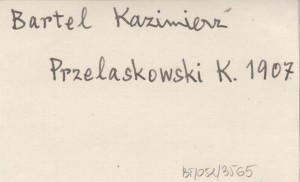 Bartel Kazimierz
Przelaskowski K. 1907
BF/OSE/3565